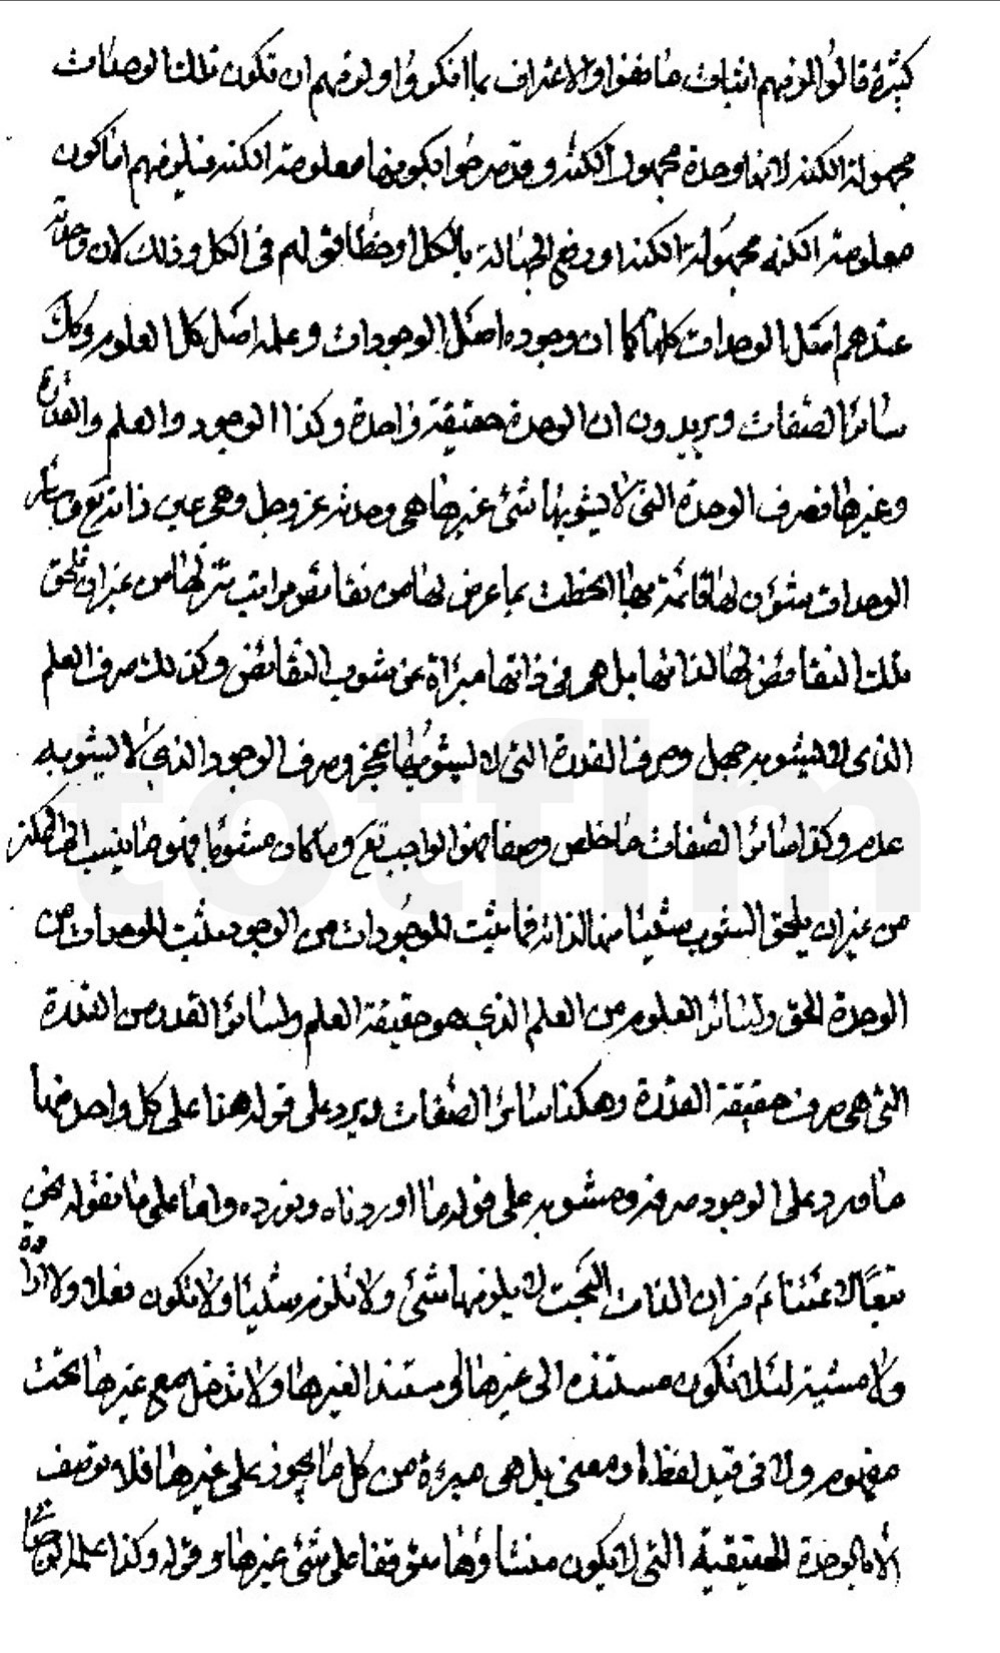 كثيرة قالوا لزمهم اثبات ما نفوا والاعتراف بما انكروا ولزمهم ان تكون تلك الوحدات
مجهولة الكنه لانها وحدة مجهول الكنه وقد صرحوا بكونها معلومة الكنه فيلزمهم اما كون
معلومة الكنه مجهولة الكنه او رفع الجهالة بالكل او خطائهم في الكل وذلك لان وحدته
عندهم اصل الوحدات كلها كما ان وجوده اصل الوجودات وعلمه اصل كل العلوم وكذا
سائر الصفات ويريدون ان الوحدة حقيقة واحدة وكذا الوجود والعلم والقدرة
وغيرها فصرف الوحدة التي لا يشوبها شئ غيرها هي وحدته عز وجل وهي عين ذاته تع وسائر
الوحدات شؤن لها قائمة بها انحطت بما عرض لها من نقائص مراتب تنزلها من غير ان تلحق
تلك النقائص لها لذاتها بل هي في ذاتها مبراة عن شوب النقائص وكذلك صرف العلم
الذي لا يشوبه جهل وصرف القدرة التي لا يشوبها عجز وصرف الوجود الذي لا يشوبه
عدم وكذا سائر الصفات ما خلص وصفا فهو الواجب تع وما كان مشوبا فهو ما ينسب الى الممكن
من غير ان يلحق الشوب شيئا منها لذاته فما يثبت للموجودات من الوجود يثبت للوحدات من
الوحدة الحق ولسائر العلوم من العلم الذي هو حقيقة العلم ولسائر القدر من القدرة
التي هي صرف حقيقة القدرة وهكذا سائر الصفات ويرد على قوله هنا على كل واحد منها
ما ورد على الوجود صرفه ومشوبه على قوله ما اوردناه ونورده واما على ما نقوله نحن
تبعا لائمتنا ع من ان الذات البحت لا يلزمها شئ ولا تلزم شيئا ولا تكون فعلا ولا ارادة
ولا مشية لئلا تكون مستندة الى غيرها او يستند اليها غيرها ولا تدخل مع غيرها تحت
مفهوم ولا في قيد لفظا ومعنى بل هي مبرءة من كل ما يجوز على غيرها فلا توصف
الا بالوحدة الحقيقية التي لا يكون منشاؤها متوقفا على شئ غيرها وقوله وكذا علمه